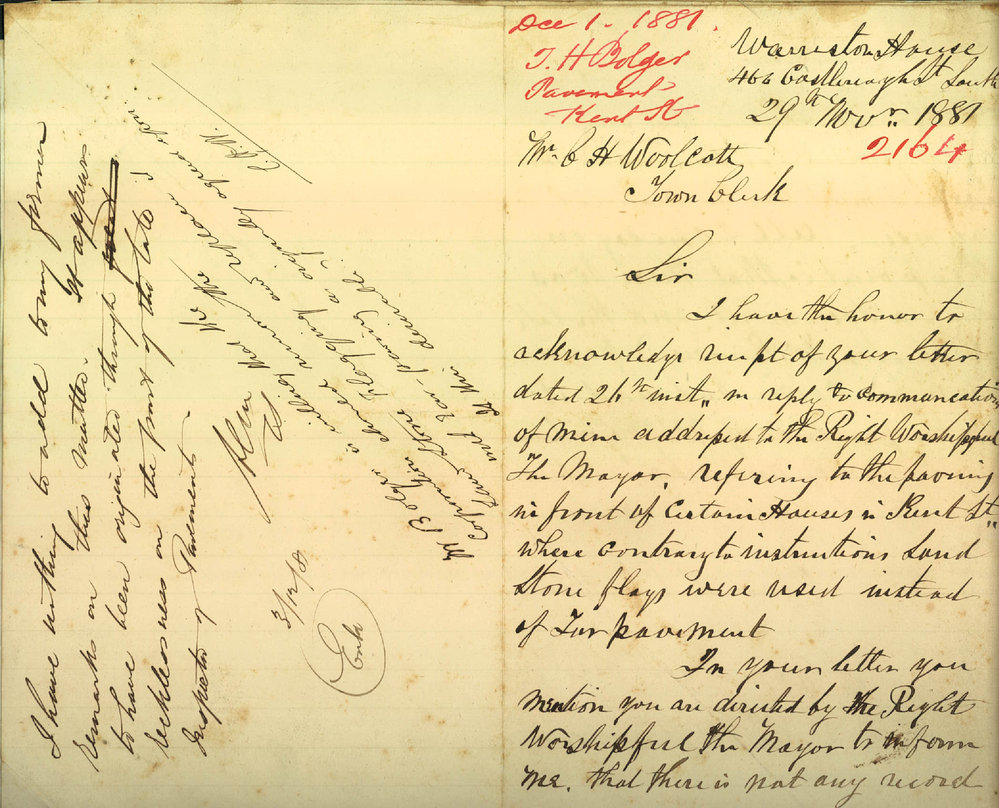 I have nothing to add to my former
remarks on this matter It appears
to have been originated through
recklessness on the part of the late
Inspector of Pavements
3/12/8
Mr Bolger is willing that the
Corporation remove and replace
and Tar paving as originally agreed upon
C.H.W.
Dec 1. 1881.
T. H Bolger
Pavement
Kent St
Warriston House
466 Castlereagh St South
29th Novr 1881
2164
Mr C H Woolcott
Town Clerk
Sir
I have the honor to
acknowledge receipt of your letter
dated 26th inst, in reply to communication
of mine addressed to the Right Worshipful
The Mayor, refering to the paving
in front of Certain Houses in Kent St
where contrary to instructions Sand
Stone flags were used instead
of Tar pavement
In your letter you
mention you are directed by the Right
Worshipful the Mayor to inform
me, that there is not any record